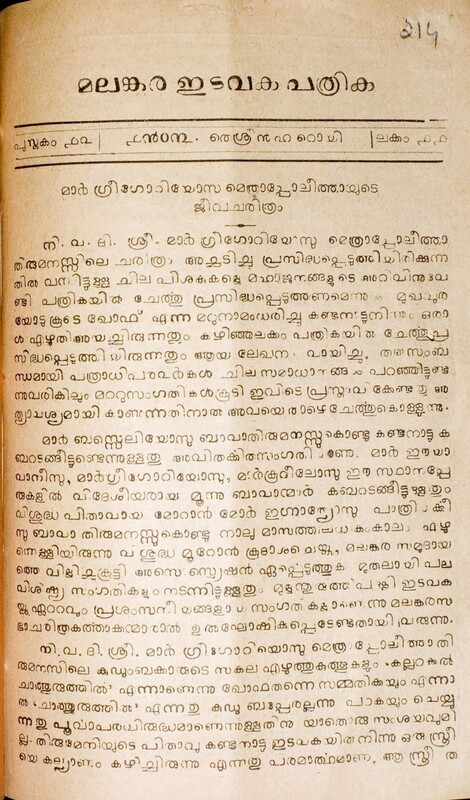 214
മലങ്കര ഇടവക പത്രിക
പുസ്തകം ൧൨ | ൧൯൦൩. തെശ്രീൻഹറൊയി | ലക്കം ൧൧
മാർ ഗ്രീഗോറിയോസ മെത്രാപ്പോലീത്തായുടെ
ജീവചരിത്രം
നി. വ. ദി. ശ്രീ. മാർ ഗ്രിഗോറിയോസു മെത്രാപ്പോലീത്താ
തിരുമനസ്സിലെ ചരിത്രം അച്ചടിച്ചു പ്രസിദ്ധപ്പെടുത്തിയിരിക്കുന്ന
തിൽ വന്നിട്ടുള്ള ചില പിശകുകളെ മഹാജനങ്ങളുടെ അറിവിന്നുവേ
ണ്ടി പത്രികയിൽ ചേൎത്തു പ്രസിദ്ധപ്പെടുത്തണമെന്നു മുഖവുര
യോടുകൂടെ ഖോഫ് എന്ന മറുനാമംധരിച്ചു കണ്ടനാട്ടുനിന്നും ഒരാ
ൾ എഴുതിഅയച്ചിരുന്നതും കഴിഞ്ഞലക്കം പത്രികയിൽ ചേൎത്തുപ്ര
സിദ്ധപ്പെടുത്തിയിരുന്നതും ആയ ലേഖനം വായിച്ചു. തത്സംബ
ന്ധമായി പത്രാധിപരവർകൾ ചില സമാധാനങ്ങൾ പറഞ്ഞിട്ടുണ്ടെ
ന്നുവരികിലും മറ്റുസംഗതികൾകൂടി ഇവിടെ പ്രസ്താവിക്കേണ്ടതു അ
ത്യാവശ്യമായി കാണുന്നതിനാൽ അവയെതാഴെചേൎത്തുകൊള്ളുന്നു.
മാർ ബസ്സേലിയോസു ബാവാതിരുമനസ്സുകൊണ്ടു കണ്ടനാട്ടു ക
ബറടങ്ങീട്ടുണ്ടെന്നുള്ളതു അവിതൎക്കിതസംഗതിയാണ. മാർ ഈയോ
വാനീസു, മാർഗ്രീഗോറിയോസു, മാർകൂറീലോസു ഈ സ്ഥാനപ്പേ
രുകളിൽ വിദേശീയരായ മൂന്നു ബാവാന്മാർ കബറടങ്ങീട്ടുള്ളതും
വിശുദ്ധ പിതാവായ മോറാൻ മോർ ഇഗ്നാത്യോസു പാത്രിയൎക്കീ
സു ബാവാ തിരുമനസ്സുകൊണ്ടു നാലു മാസത്തിലധികംകാലം എഴു
ന്നെള്ളിയിരുന്നു വിശുദ്ധ മൂറോൻ കൂദാശചെയ്തും, മലങ്കര സമുദായ
ത്തെ വിളിച്ചുകൂട്ടി അസോസ്യേഷൻ ഏൎപ്പെടുത്തുക മുതലായി പല
വിശിഷ്ട സംഗതികളുംനടന്നിട്ടുള്ളതും മുളന്തുരുത്തിപള്ളി ഇടവക
യ്ക്കു ഏറ്റവും പ്രശംസനീയങ്ങളായ സംഗതികളാണെന്നു മലങ്കരസ
ഭാചരിത്രകൎത്താക്കന്മാരാൽ ഉൽഘോഷിക്കപ്പെടേണ്ടതായിവരുന്നു.
നി. വ. ദി. ശ്രീ. മാർ ഗ്രീഗോറിയൊസു മെത്രാപ്പോലീത്താതി
രുമനസിലെ കുഡുംബക്കാരുടെ സകല എഴുത്തുകുത്തുകളും ‘കല്ലറക്കൽ
ചാത്തുരുത്തിൽ’ എന്നാണെന്നു ഖോഫതന്നെ സമ്മതിക്കയും എന്നാ
ൽ ‘ചാത്തുരുത്തിൽ’ എന്നതു കുഡുംബപ്പേരല്ലെന്നു പറകയും ചെയ്യു
ന്നതു പൂൎവാപരവിരുദ്ധമാണെന്നുള്ളതിനു യാതൊരു സംശയവുമി
ല്ല. തിരുമേനിയുടെ പിതാവു കണ്ടനാട്ട ഇടവകയിൽനിന്നു ഒരു സ്ത്രീ
യെ കല്യാണം കഴിച്ചിരുന്നു എന്നതു പരമാൎത്ഥമാണ. ആ സ്ത്രീ ത